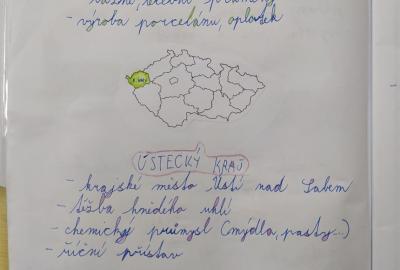 lázně, léčební prameny,
- výroba porcelánu, oplatek
K. Vary
ÚSTECKÝ KRAJ
- krajské město Ústí nad Labem
- těžba hnědého uhlí
- chemický průmysl (mýdla, pasty...)
- říční přístav